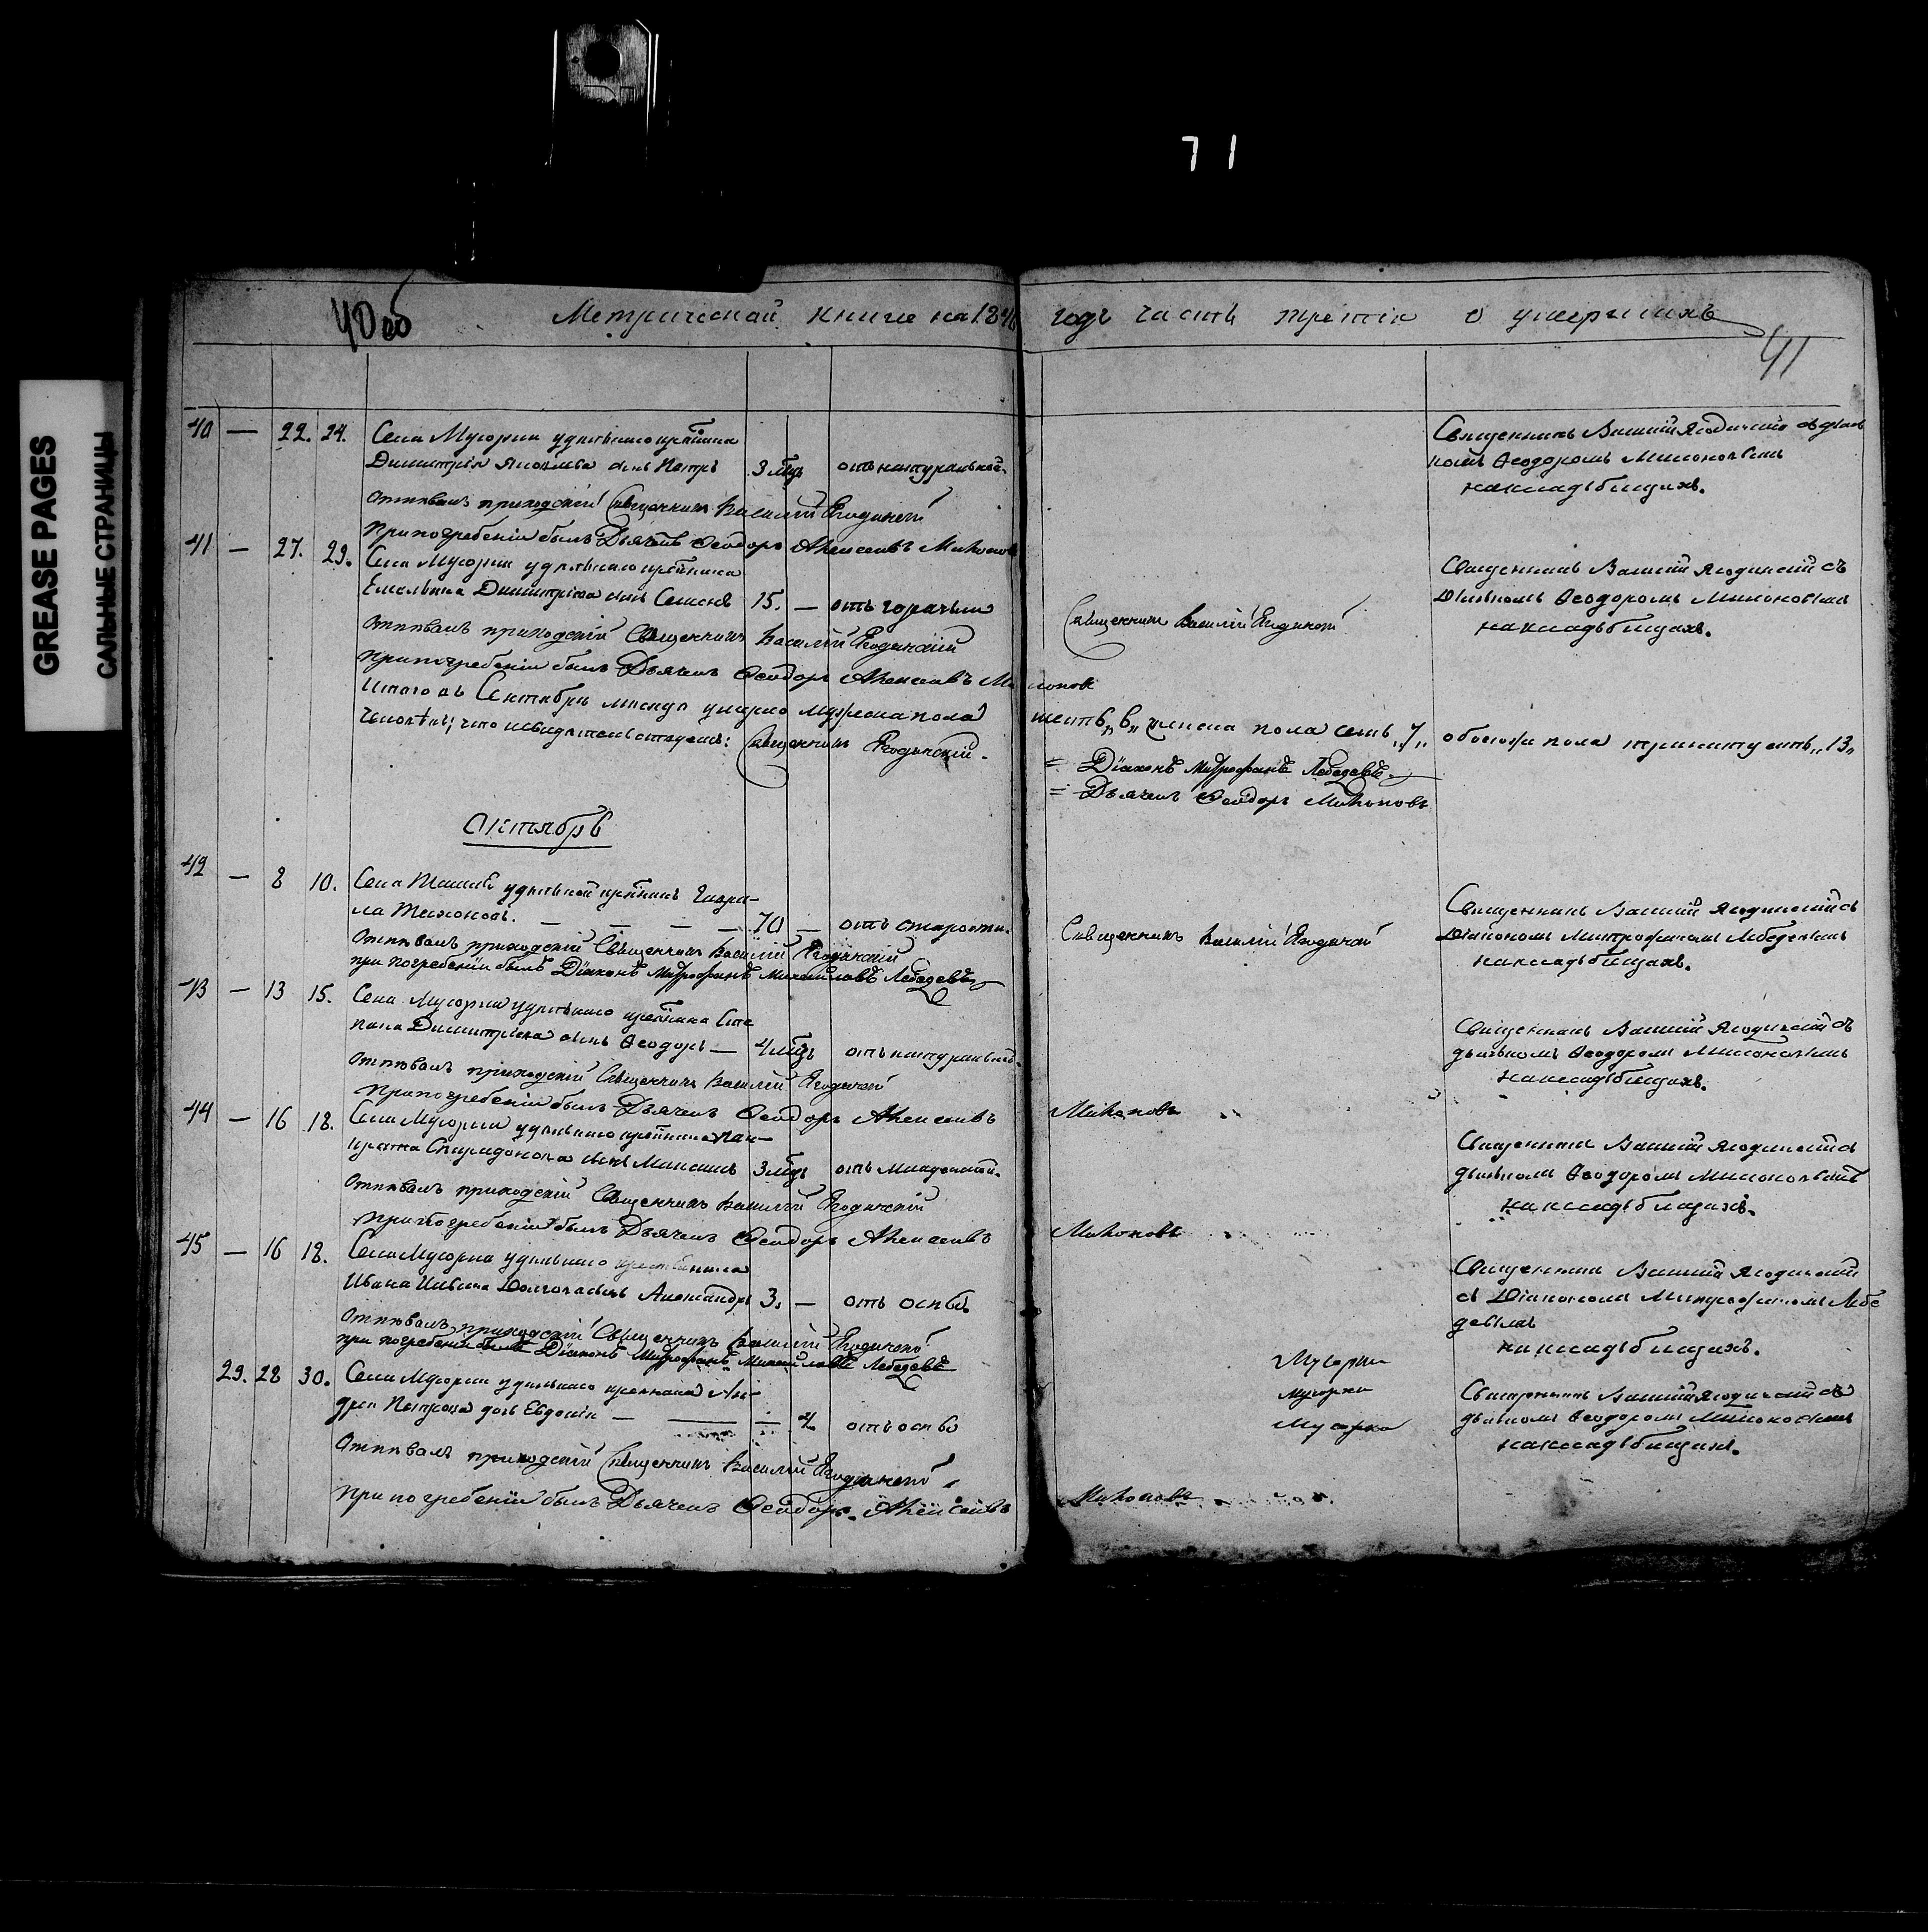 71
GREASE PAGES
САЛЬНЫЕ СТРАНИЦЫ
40 об
Метрической книге на 184 годъ часть третія о умершихъ
41
40 — 22. 24. Села Мусорки удѣльнаго крестьянина
Димитрія Яковлева сынъ Петръ 3 мцъ отъ натуральной
Отпѣвалъ приходскій Священникъ Василій Ягодинскій
При погребеніи былъ Дьячекъ Ѳеодоръ Алексеевъ
Священникъ Василій Ягодинскій съ дьяч
комъ Ѳеодоромъ
на кладбищахъ.
41 — 27. 29. Села Мусорки удѣльнаго крестьянина
Емельяна Димитріева сынъ Семенъ 15. — отъ горячки
Отпѣвалъ приходскій Священникъ Василій Ягодинскій
При погребеніи былъ Дьячекъ Ѳеодоръ Алексеевъ
Священникъ Василій Ягодинскій
Священникъ Василій Ягодинскій съ
Дьячкомъ Ѳеодоромъ
на кладбищахъ.
Итого въ Сентябрѣ мѣсяцѣ умерло мужеска пола шесть „6„ женска пола семь „7„ обоего пола тринадцать „13„
что и свидѣтельствуемъ: Священникъ Ягодинскій.
= Діаконъ Митрофанъ Лебедевъ
= Дьячекъ Ѳеодоръ
Октябрь
42 — 8 10. Села удѣльной крестьянинъ Гаври-
ла Тихоновъ. — — — — 70 — отъ старости.
Отпѣвалъ приходскій Священникъ Василій Ягодинскій
при погребеніи былъ Діаконъ Митрофанъ Михайловъ Лебедевъ
Священникъ Василій Ягодинской
Священникъ Василій Ягодинскій съ
Діакономъ Митрофаномъ Лебедевымъ
на кладбищахъ.
43 — 13 15. Села Мусорки удѣльнаго крестьянина Сте
пана Димитріева сынъ Ѳеодоръ — 4 мцъ отъ натуральной
Отпѣвалъ приходскій Священникъ Василій Ягодинской
При погребеніи былъ Дьячекъ Ѳеодоръ Алексеевъ
Священникъ Василій Ягодинскій съ
дьячкомъ Ѳеодоромъ
на кладбищахъ.
44 — 16 18. Села Мусорки удѣльнаго крестьянина Пан-
крата Спиридонова сынъ 3 мцъ отъ младенческой.
Отпѣвалъ приходскій Священникъ Василій Ягодинскій
При погребеніи былъ Дьячекъ Ѳеодоръ Алексеевъ
Священникъ Василій Ягодинскій съ
дьячкомъ Ѳеодоромъ
на кладбищахъ.
45 — 16 18. Села Мусорки удѣльнаго крестьянина
Ивана Ильина сынъ Александръ 3. — отъ оспы.
Отпѣвалъ приходскій Священникъ Василій Ягодинской
при погребеніи былъ Діаконъ Митрофанъ Михайловъ Лебедевъ
Священникъ Василій Ягодинскій
съ Діакономъ Митрофаномъ Лебе
девымъ
на кладбищахъ.
29. 28 30. Села Мусорки удѣльнаго крестьянина Ан-
дрея Петрова дочь Евдокія — — — 4 отъ оспы
Отпѣвалъ приходскій Священникъ Василій Ягодинской
При погребеніи былъ Дьячекъ Ѳеодоръ Алексеевъ
Мусорки
мусорки
Мусорка
Священникъ Василій Ягодинскій съ
дьячкомъ Ѳеодоромъ
на кладбищахъ.